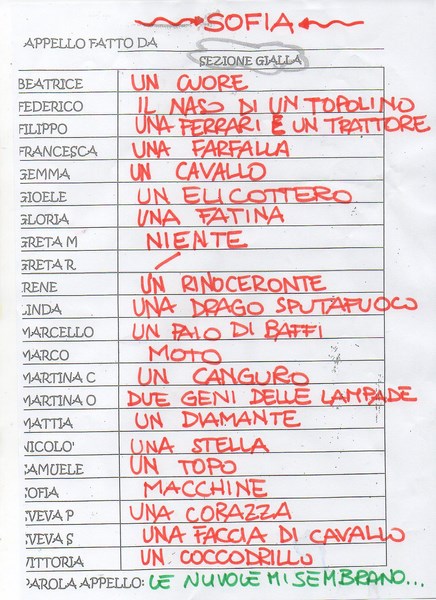 SOFIA
APPELLO FATTO DA
SEZIONE GIALLA
BEATRICE UN CUORE
FEDERICO IL NASO DI UN TOPOLINO
FILIPPO UNA FERRARI E UN TRATTORE
FRANCESCA UNA FARFALLA
GEMMA UN CAVALLO
GIOELE UN ELICOTTERO
GLORIA UNA FATINA
GRETA M NIENTE
GRETA R /
RENE UN RINOCERONTE
LINDA UNA DRAGO SPUTAFUOCO
MARCELLO UN PAIO DI BAFFI
MARCO MOTO
MARTINA C UN CANGURO
MARTINA O DUE GENI DELLE LAMPADE
MATTIA UN DIAMANTE
NICOLO' UNA STELLA
SAMUELE UN TOPO
SOFIA MACCHINE
SVEVA P UNA CORAZZA
SVEVA S UNA FACCIA DI CAVALLO
VITTORIA UN COCCODRILLO
PAROLA APPELLO: LE NUVOLE MI SEMBRANO...